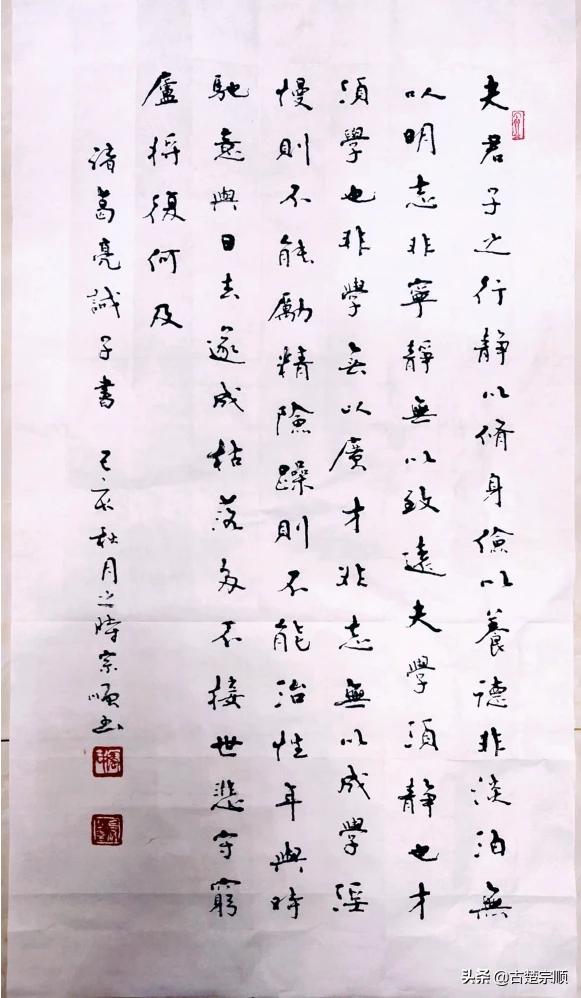 夫君子之行靜以脩身儉以養德非淡泊無
以明志非寧靜無以致遠夫學須静也才
須學也非學無以廣才非志無以成學淫
慢則不能勵精險躁則不能治性年與時
馳意與日去遂成枯落多不接世悲守窮
廬將復何及
諸葛亮誡子書 己亥秋月之時宗順书
头条 @古楚宗顺